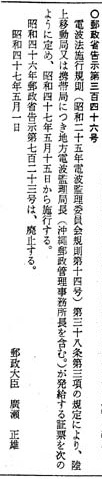 ◯郵政省告示第三百四十六号
電波法施行規則(昭和二十五年電波監理委員会規則第十四号)第三十八条第三項の規定により、陸
上移動局又は携帯局につき地方電波監理局長(沖縄郵政管理事務所長を含む。)が発給する証票を次の
ように定め、昭和四十七年五月十五日から施行する。
昭和四十六年郵政省告示第七百二十三号は、廃止する。
昭和四十七年五月一日
郵政大臣 廣瀬 正雄